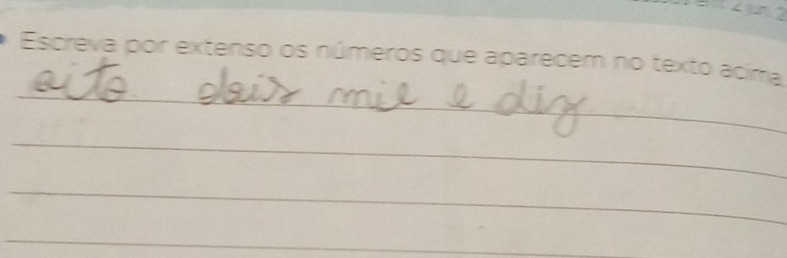 Escreva por extenso os números que aparecem no texto acima
oito dois mil e diz